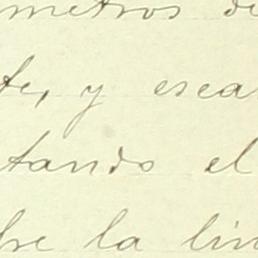 metros de
te, y esca
tando el
bre la lin